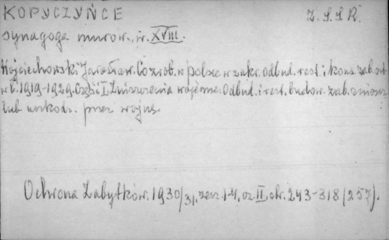 KOPYCZYŃCE Z.S.S.R.
synagoga murow. w. XVIII.
Wojciechowski Jarosław. Co zrob. w Polsce w zakr. odbud. rest. i kons. zab. 
w l. 1919-1929. Część I. Zniszczenia wojenne. Odbud. i rest. budow. zab. zniszcz.
lub uszkodz. przez wojnę.
Ochrona Zabytków. 1930/31, zesz. 1-4, cz. II, str. 243-318 (257).